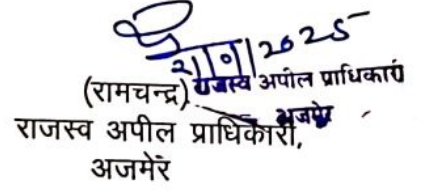 2025
(रामचन्द्र)
राजस्व अपील प्राधिकारी
अजमेर
राजस्व अपील प्राधिकारी,
अजमेर